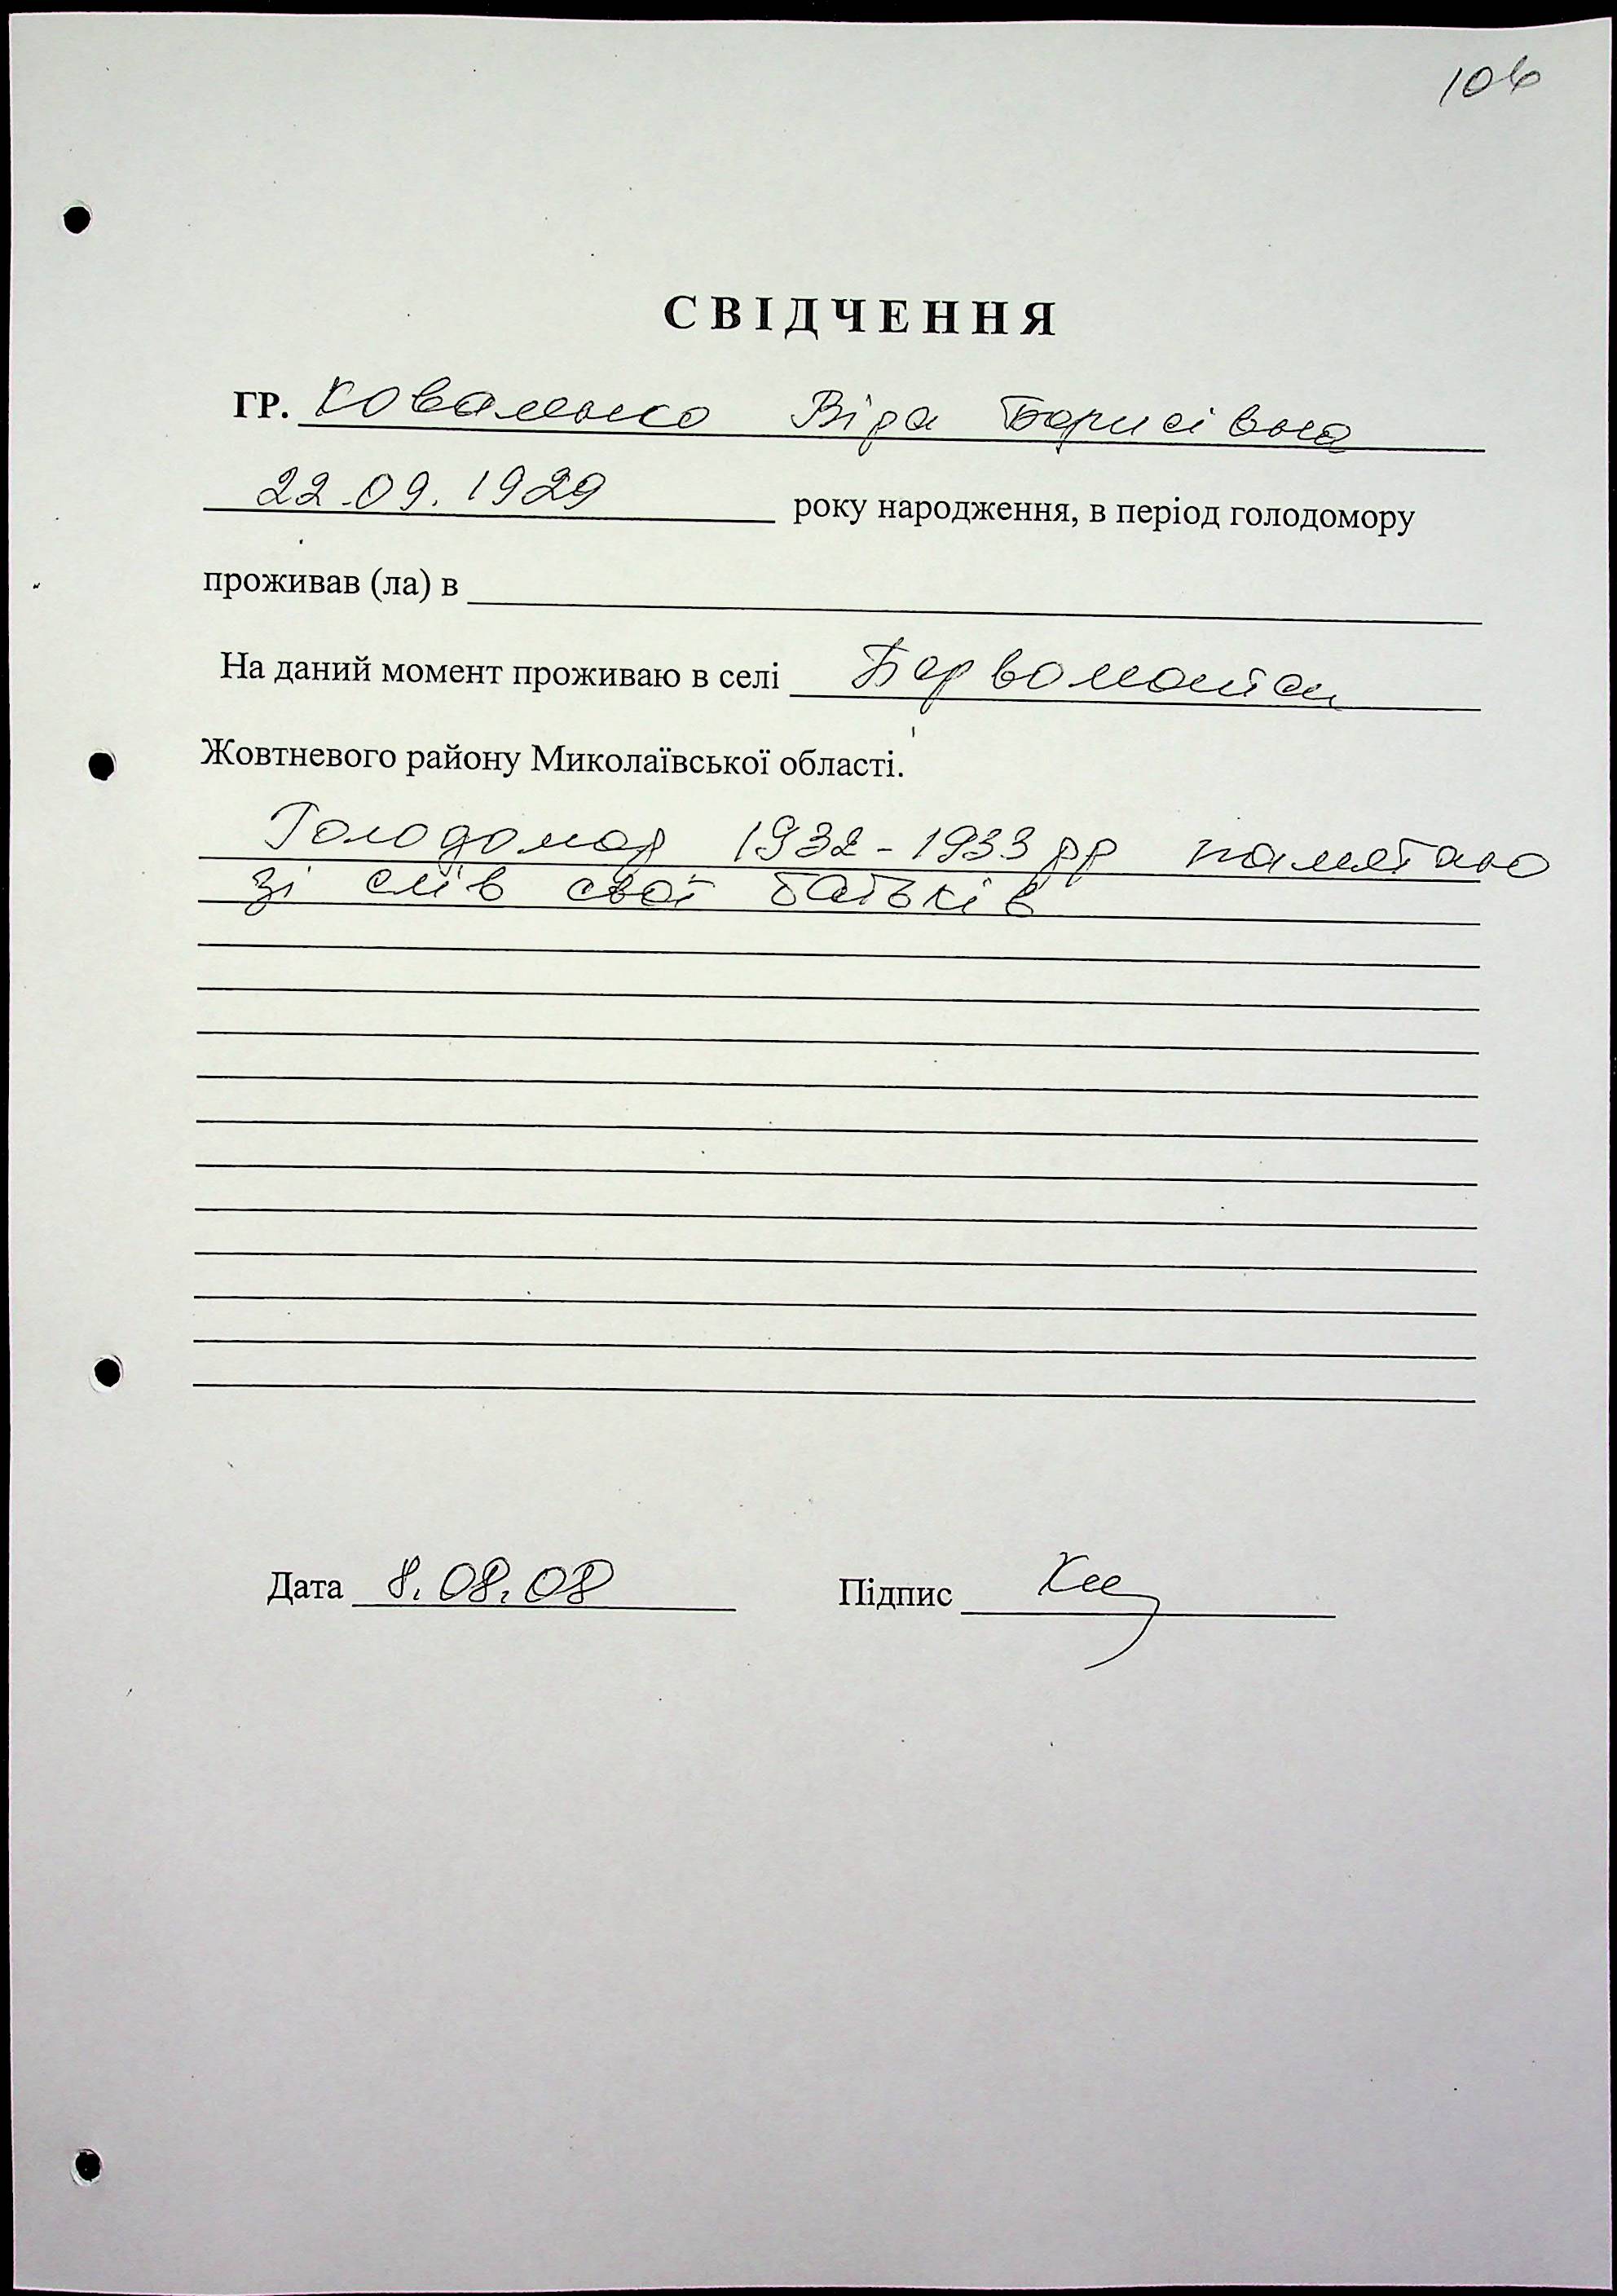 106
СВІДЧЕННЯ
ГР. Ковалько Віра Борисівна
22.09.1929 року народження, в період голодомору
проживав (ла) в
На даний момент проживаю в селі
Жовтневого району Миколаївської області.
Голодомор 1932-1933 рр памятаю
зі слів свої батьків
Дата 8.08.08 Підпис